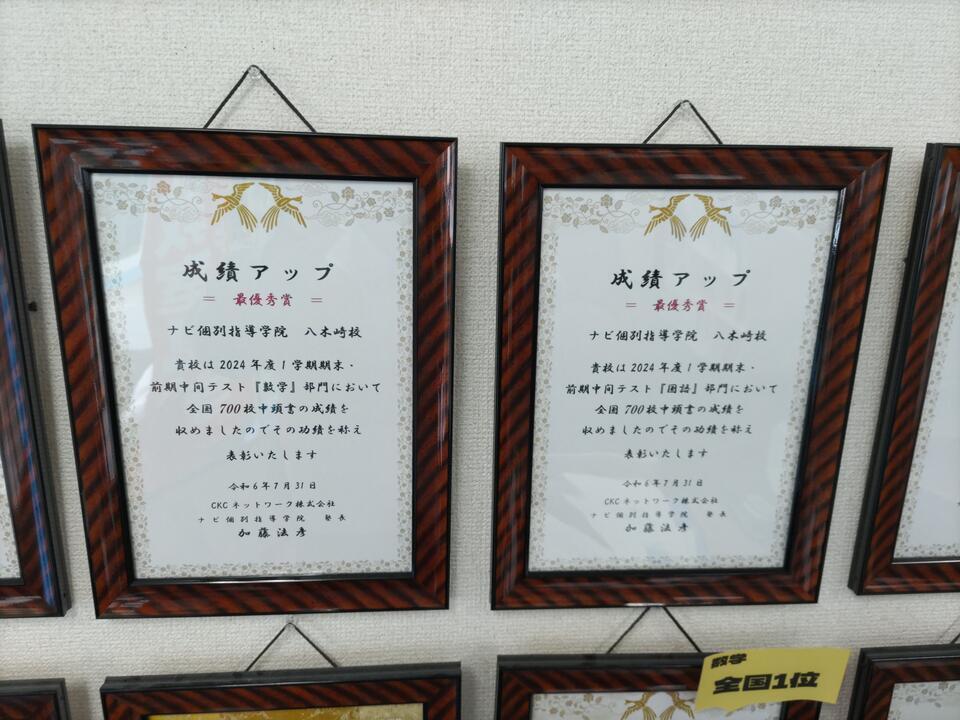 成績アップ
＝ 最優秀賞 ＝
ナビ個別指導学院 八木崎校
貴校は2024年度1学期期末・
前期中間テスト『数学』部門において
全国700校中頭書の成績を
収めましたのでその功績を称え
表彰いたします
令和6年7月31日
CKCネットワーク株式会社
ナビ個別指導学院 塾長
加藤法彦
成績アップ
＝ 最優秀賞 ＝
ナビ個別指導学院 八木崎校
貴校は2024年度1学期期末・
前期中間テスト『国語』部門において
全国700校中頭書の成績を
収めましたのでその功績を称え
表彰いたします
令和6年7月31日
CKCネットワーク株式会社
ナビ個別指導学院 塾長
加藤法彦
数学
全国1位